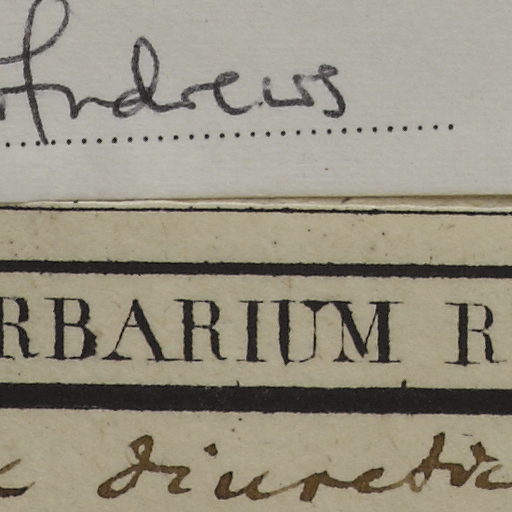 Andrews
RBARIUM R
diuretic